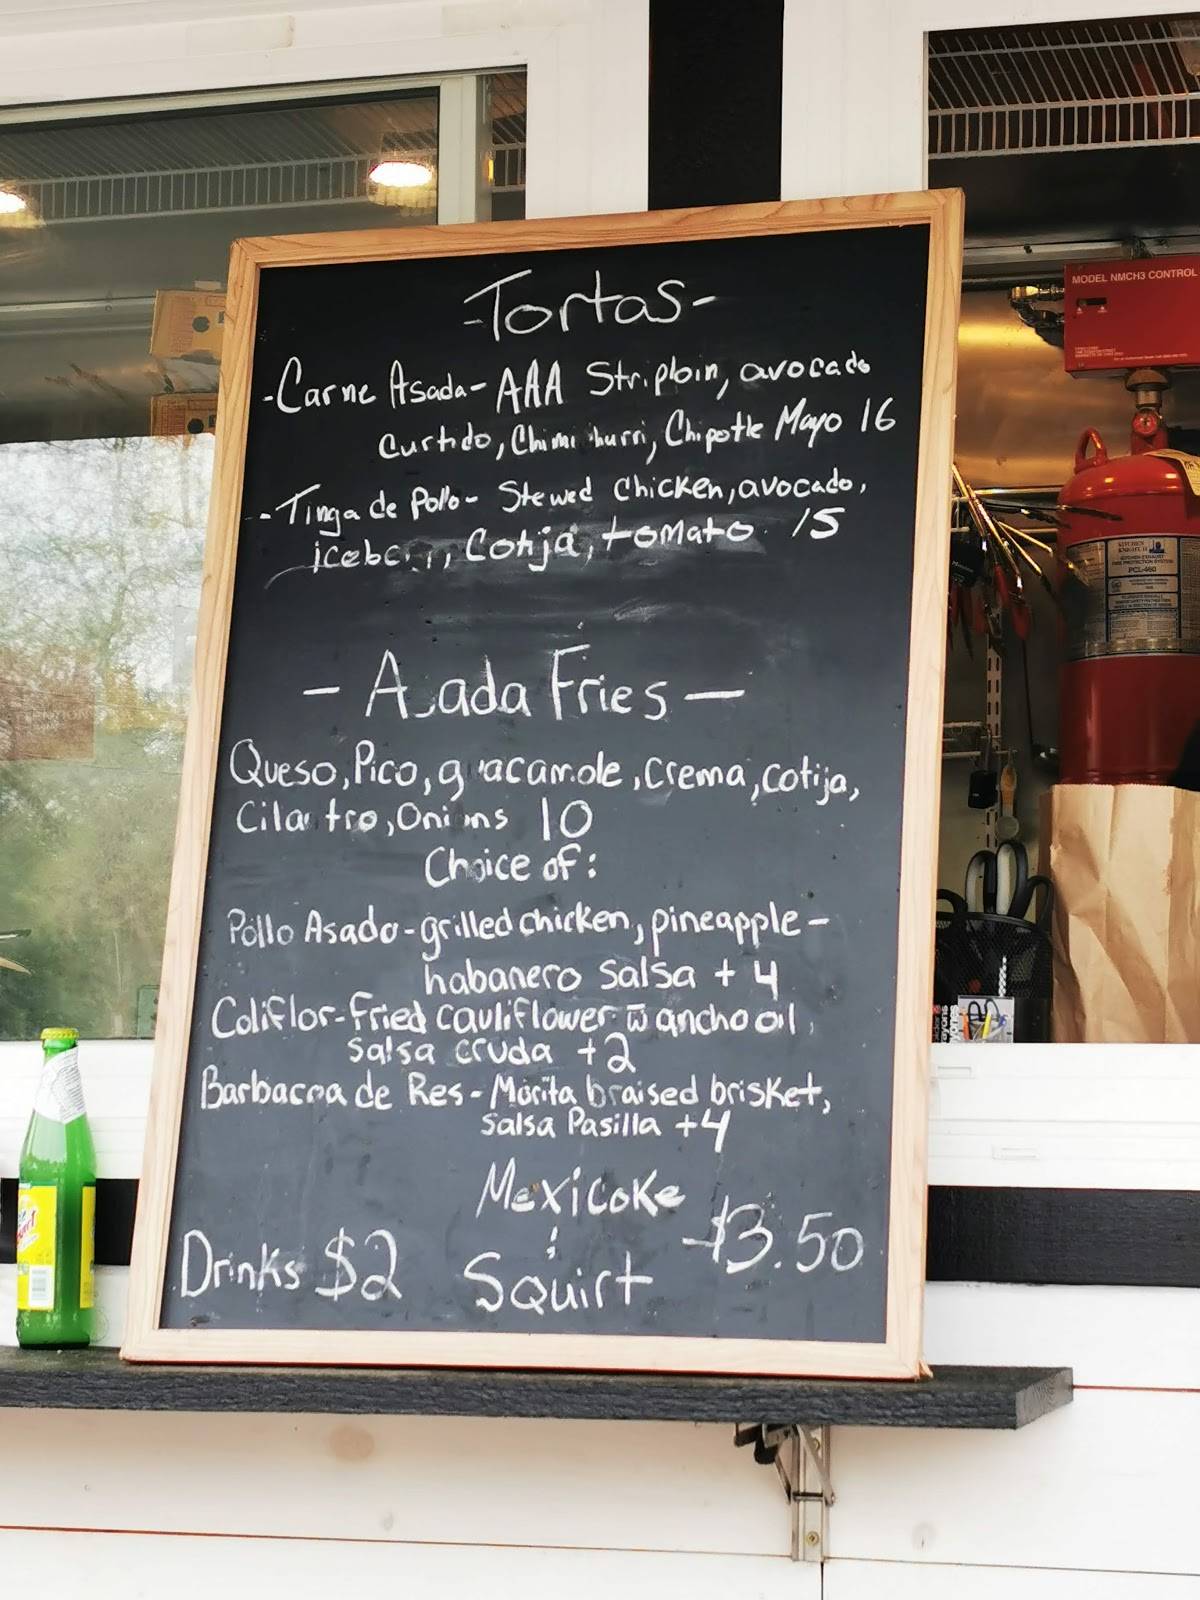 -Tortas-
-Carne Asada- AAA Striploin, avocado
Curtido, Chimi hurri, Chipotle Mayo 16
-Tinga de Pollo- Stewed Chicken, avocado,
Cotija, tomato 15
- A ada Fries -
Queso, Pico, g acamole, Crema, cotija,
Cila tro, Oni ns 10
Choice of:
Pollo Asado- grilled chicken, pineapple-
habanero salsa + 4
Coliflor- Fried cauliflower w ancho oil,
salsa cruda +2
Barbacoa de Res- Morita braised brisket,
salsa Pasilla +4
Mexicoke
&
Squirt
$3.50
Drinks $2
MODEL NMCH3 CONTROL
KITCHEN
KNIGHT II
PCL-460